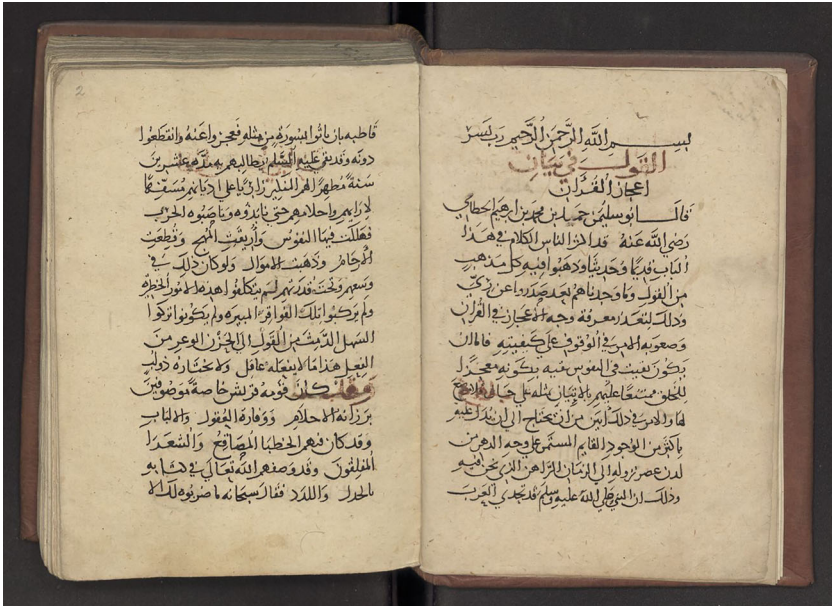 بسم الله الرحمن الرحيم رب يسر
القول في بيان
اعجاز القران
قال ابو سليمن حمد بن محمد بن ابرهيم الخطابي
رضي الله عنه قد اكثر الناس الكلام في هذا
الباب قديما وحديثا وذهبوا فيه كل مذهب
من القول وما وجدناهم بعد صدروا عن ري
وذلك لتعذر معرفة وجه الاعجاز في القران
وصعوبه الامر في الوقوف على كيفيته فاما ان
يكون نقبت في النفوس نقبه بكونه معجزا
للخلق ممتنعا عليهم الاتيان بمثله على حال فلا
لها والامر في ذلك ابين من ان يحتاج الى ان يدل عليه
باكثر من الوجود القايم المستمر على وجه الدهر من
لدن عصر نزوله الى الزمان الراهن الذي نحن فيه
وذلك ان النبي صلى الله عليه وسلم قد تحدى العرب
2
قاطبه بان ياتوا بسورة من مثله فعجزوا عنه وانقطعوا
دونه وقد بقي عليه السلم يطالبهم به مدة عشرين
سنة مظهرا لهم النكير زاريا على اديانهم مسفها
لارايهم واحلامهم حتى نابذوه وناصبوه الحرب
فهلكت فيها النفوس واريقت المهج وقطعت
الارحام وذهبت الاموال ولو كان ذلك في
وسعهم وتحت قدرتهم لم يتكلفوا هذه الامور الخطيرة
ولم يركبوا تلك الفواقر المبيرة ولم يكونوا تركوا
السهل الدمث من القول الى الحزن الوعر من
الفعل هذا ما لا يفعله عاقل ولا يختاره ذو لب
وقد كان قومه قريش خاصة موصوفين
برزانه الاحلام ووفاره العقول والالباب
وقد كان فيهم الخطبا المصاقع والشعرا
المفلقون وقد وصفهم الله تعالى في كتابه
بالجدل واللدد فقال سبحانه ما ضربوه لك الا